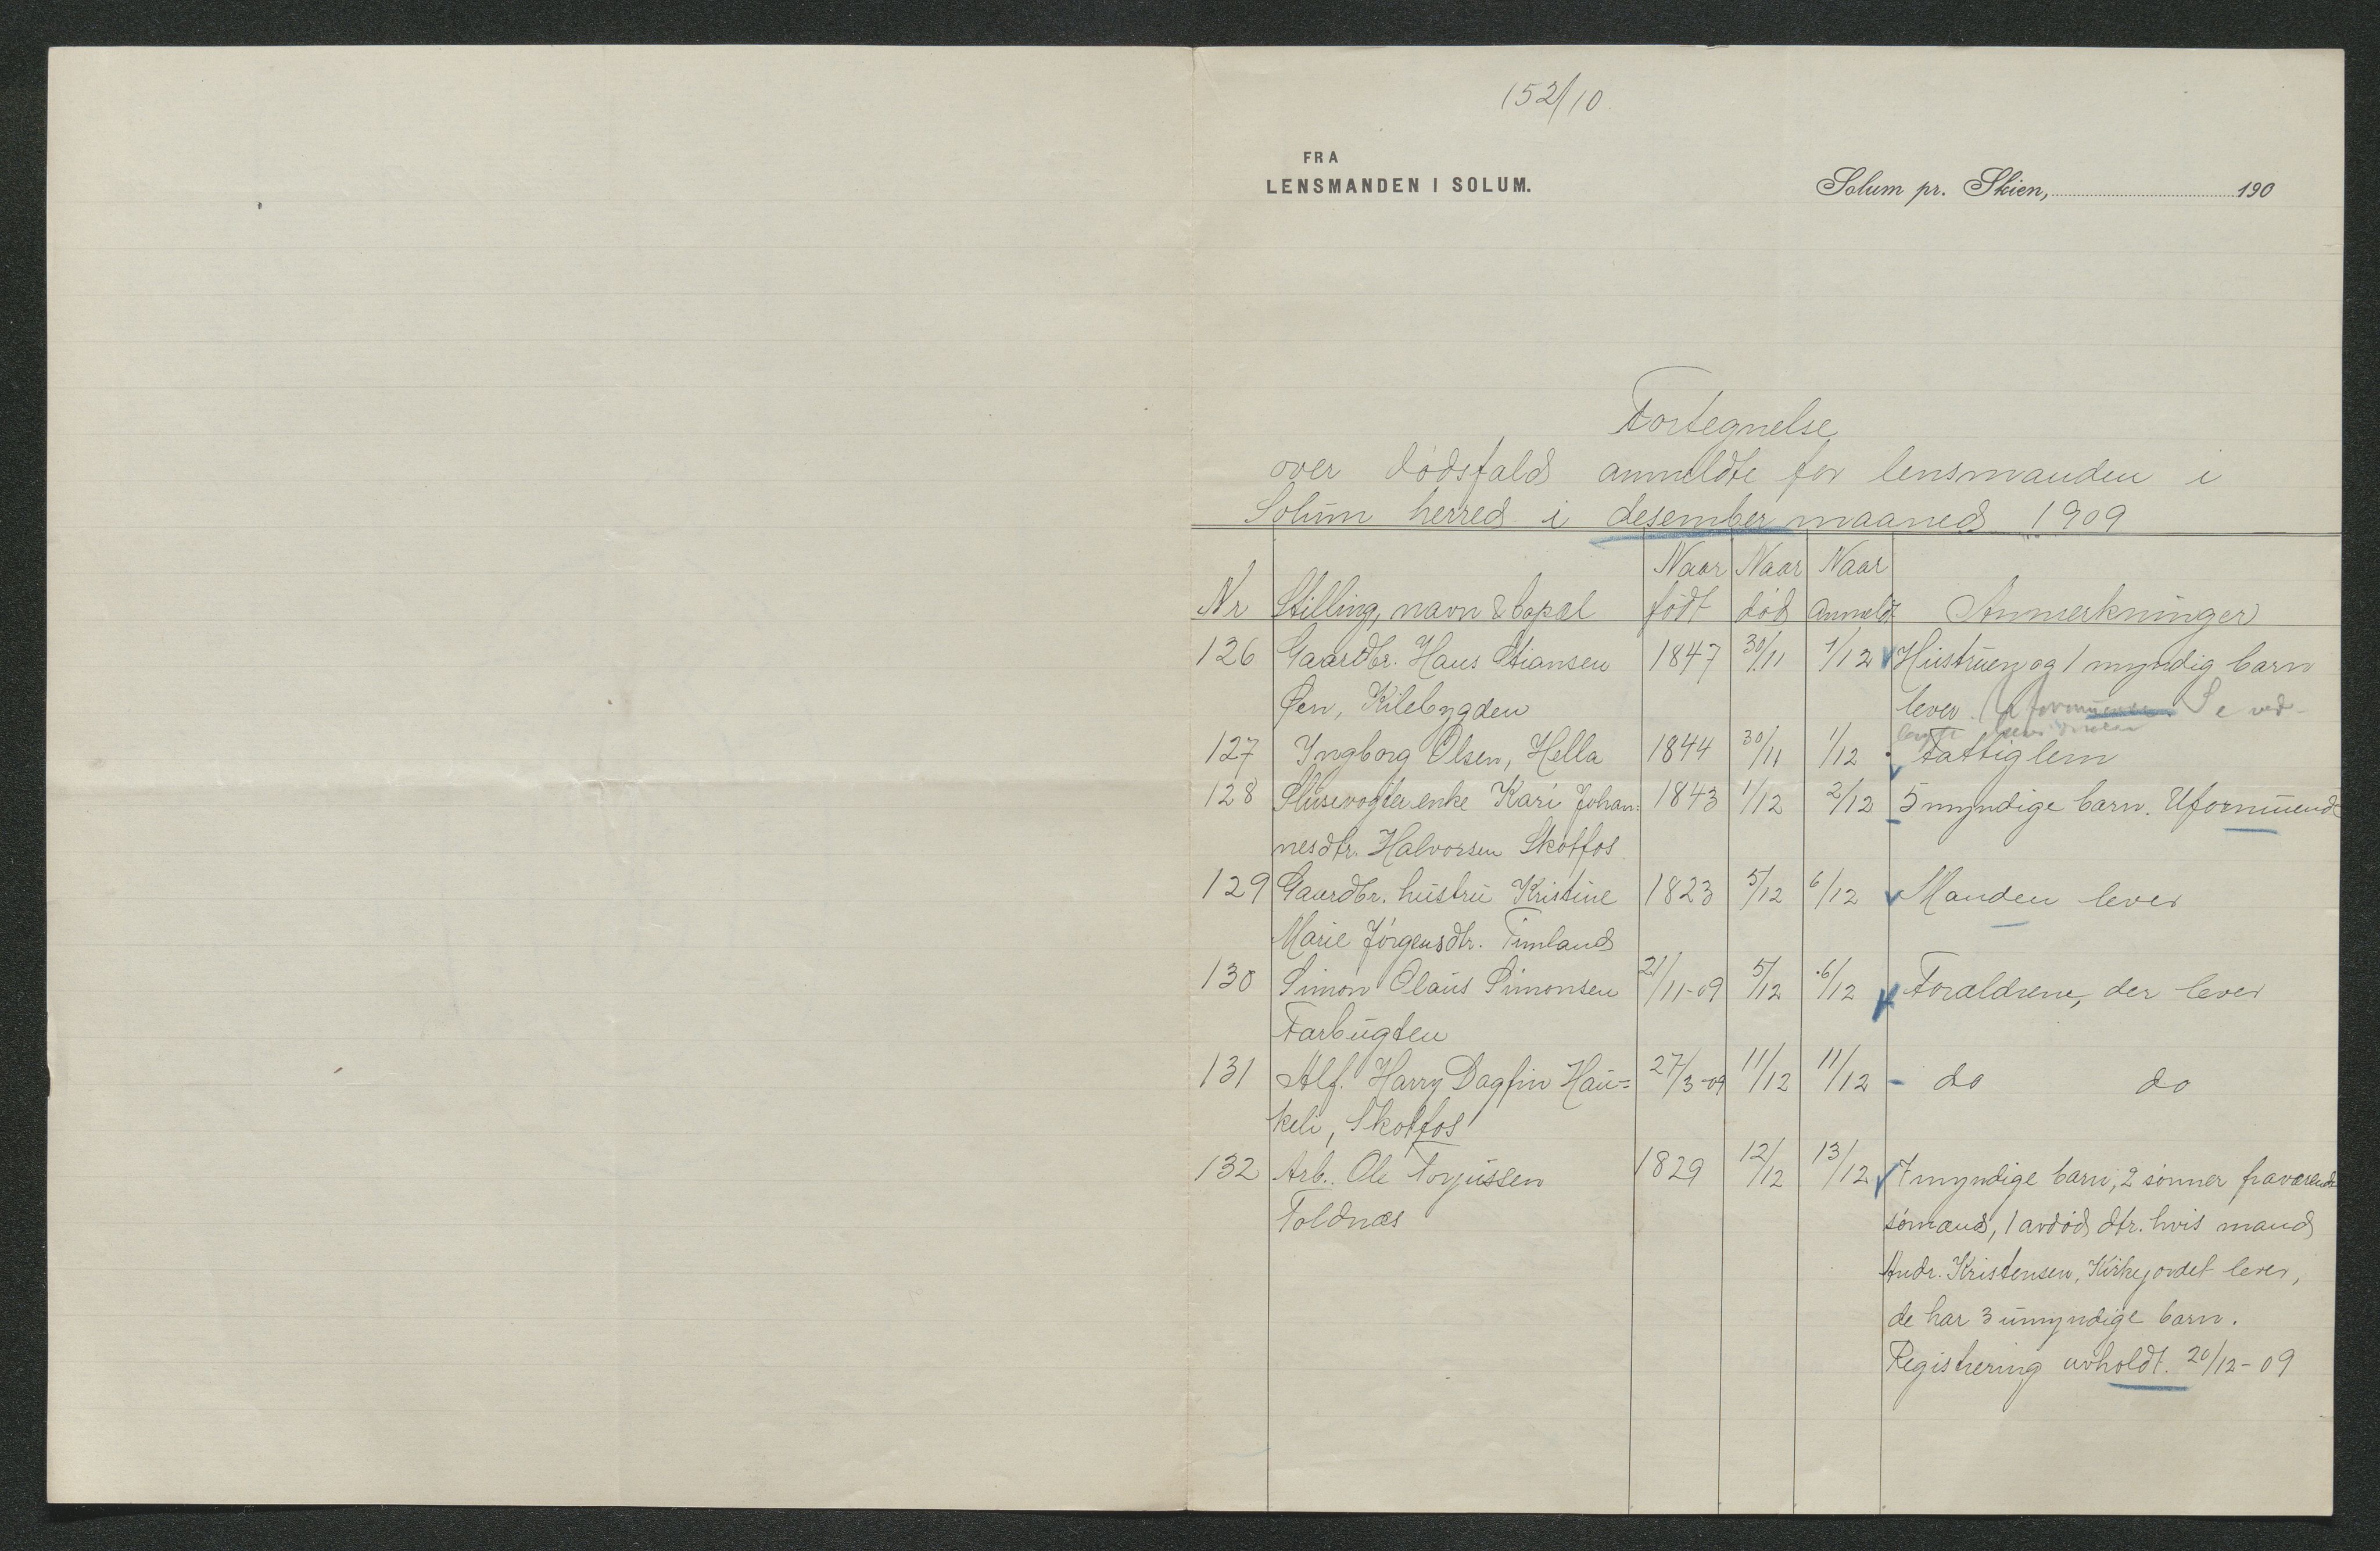 152/10
FRA
LENSMANDEN I SOLUM.
Solum pr. Skien, 190
Fortegnelse
over dødsfald anmeldte for lensmanden i
Solum herred i desember maaned 1909
Nr Stilling, navn & bopæl Naar født Naar død Naar Anmeldt Anmerkninger
126 Gaardbr. Hans Stiansen 1847 30/11 1/12 Hustruen og 1 myndig barn
Øen, Kilebygden lever. Uformuende Se ved-
127 Ingborg Olsen, Hella 1844 30/11 1/12 Fattiglem
128 Slusevogter enke Kari Johan- 1843 1/12 2/12 5 myndige barn. Uformuend
nesdtr. Halvorsen Skotfos
129 Gaardbr. hustru Kristine 1823 5/12 6/12 Manden lever
Marie Jørgensdtr. Timland
130 Simon Olaus Simonsen 21/11-09 5/12 6/12 Forældrene, der lever
Farbugten
131 Alf. Harry Dagfin Hau= 27/3-09 11/12 11/12 - do do
keli, Skotfos
132 Arb. Ole Torjussen 1829 12/12 13/12 7 myndige barn, 2 sønner fraværende
Toldnæs sømænd, 1 avdød dtr. hvis mand
Andr. Kristensen, Kirkejordet lever,
de har 3 umyndige barn.
Registrering avholdt. 20/12-09